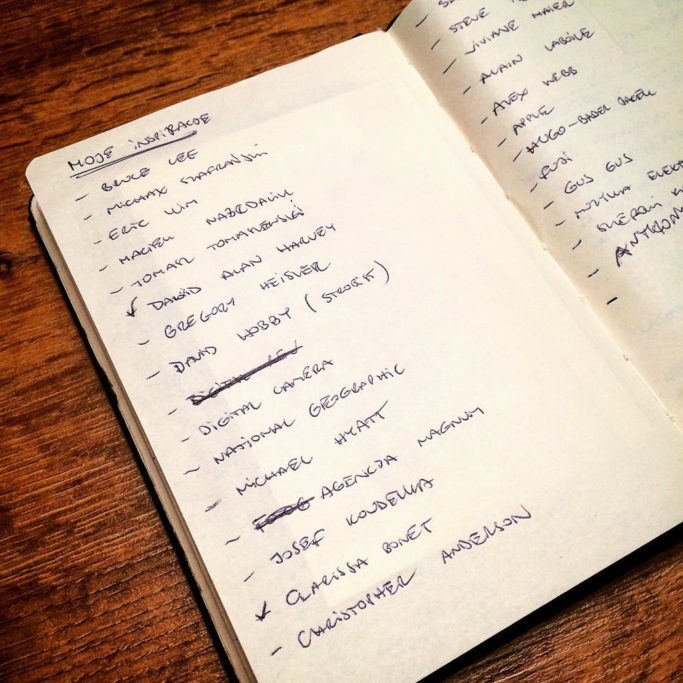 MOJE INSPIRACJE
- BRUCE LEE
- MICHAŁ SZAFRAŃSKI
- ERIC KIM
- MACIEJ NABRDALIK
- TOMASZ TOMASZEWSKI
✓ DAVID ALAN HARVEY
- GREGORY HEISLER
- DAVID HOBBY (STROBIST)
- DIGITAL REV
- DIGITAL CAMERA
- NATIONAL GEOGRAPHIC
- MICHAEL HYATT
- AGENCJA MAGNUM
- JOSEF KOUDELKA
✓ CLARISSA BONET
- CHRISTOPHER ANDERSON
- STEVE
- VIVIANE MAIER
- ALAIN LABOILE
- ALEX WEBB
- APPLE
- HUGO-BADER JACEK
- FUJI
- GUS GUS
- MUZYKA
-
- ANTHONY
-